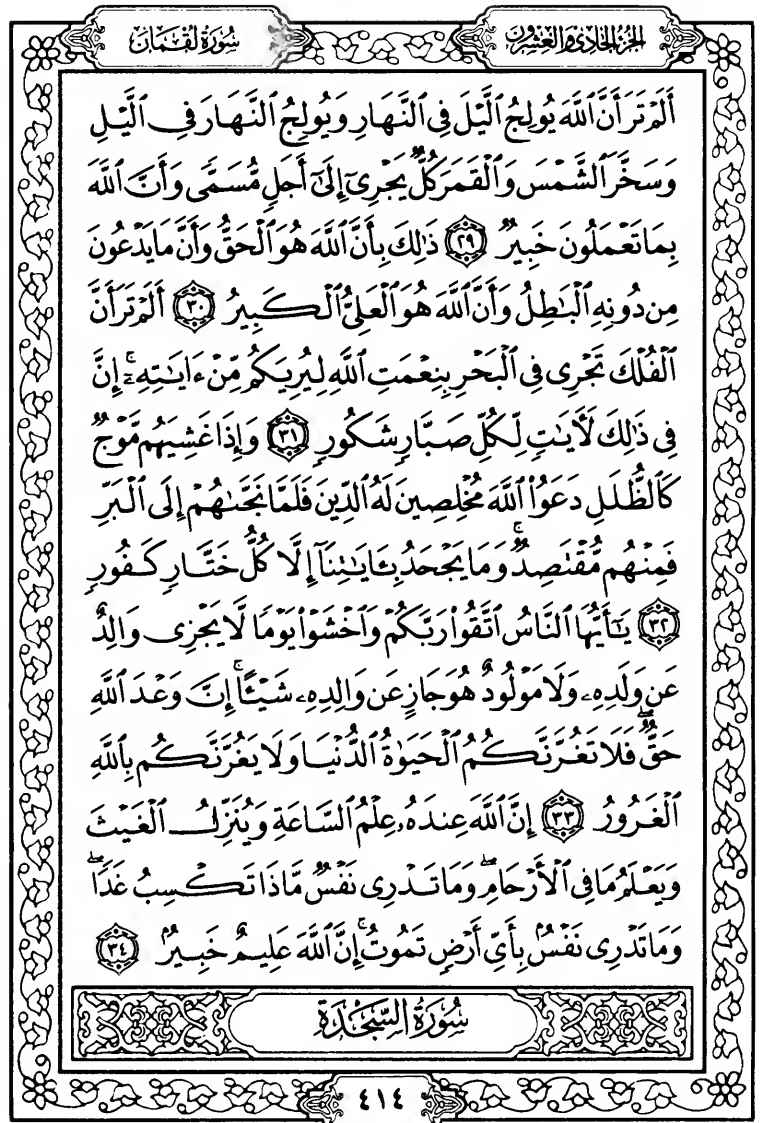 الجزء الحادي والعشرون
سورة لقمان
أَلَمْ تَرَ أَنَّ ٱللَّهَ يُولِجُ ٱلَّيْلَ فِى ٱلنَّهَارِ وَيُولِجُ ٱلنَّهَارَ فِى ٱلَّيْلِ
وَسَخَّرَ ٱلشَّمْسَ وَٱلْقَمَرَ كُلٌّ يَجْرِىٓ إِلَىٰٓ أَجَلٍ مُّسَمًّى وَأَنَّ ٱللَّهَ
بِمَا تَعْمَلُونَ خَبِيرٌ ﴿٢٩﴾ ذَٰلِكَ بِأَنَّ ٱللَّهَ هُوَ ٱلْحَقُّ وَأَنَّ مَا يَدْعُونَ
مِن دُونِهِ ٱلْبَٰطِلُ وَأَنَّ ٱللَّهَ هُوَ ٱلْعَلِىُّ ٱلْكَبِيرُ ﴿٣٠﴾ أَلَمْ تَرَ أَنَّ
ٱلْفُلْكَ تَجْرِى فِى ٱلْبَحْرِ بِنِعْمَتِ ٱللَّهِ لِيُرِيَكُم مِّنْ ءَايَٰتِهِۦٓ ۚ إِنَّ
فِى ذَٰلِكَ لَءَايَٰتٍ لِّكُلِّ صَبَّارٍ شَكُورٍ ﴿٣١﴾ وَإِذَا غَشِيَهُم مَّوْجٌ
كَٱلظُّلَلِ دَعَوُا۟ ٱللَّهَ مُخْلِصِينَ لَهُ ٱلدِّينَ فَلَمَّا نَجَّىٰهُمْ إِلَى ٱلْبَرِّ
فَمِنْهُم مُّقْتَصِدٌ ۚ وَمَا يَجْحَدُ بِـَٔايَٰتِنَآ إِلَّا كُلُّ خَتَّارٍ كَفُورٍ
﴿٣٢﴾ يَٰٓأَيُّهَا ٱلنَّاسُ ٱتَّقُوا۟ رَبَّكُمْ وَٱخْشَوْا۟ يَوْمًا لَّا يَجْزِى وَالِدٌ
عَن وَلَدِهِۦ وَلَا مَوْلُودٌ هُوَ جَازٍ عَن وَالِدِهِۦ شَيْـًٔا ۚ إِنَّ وَعْدَ ٱللَّهِ
حَقٌّ ۖ فَلَا تَغُرَّنَّكُمُ ٱلْحَيَوٰةُ ٱلدُّنْيَا وَلَا يَغُرَّنَّكُم بِٱللَّهِ
ٱلْغَرُورُ ﴿٣٣﴾ إِنَّ ٱللَّهَ عِندَهُۥ عِلْمُ ٱلسَّاعَةِ وَيُنَزِّلُ ٱلْغَيْثَ
وَيَعْلَمُ مَا فِى ٱلْأَرْحَامِ ۖ وَمَا تَدْرِى نَفْسٌ مَّاذَا تَكْسِبُ غَدًا ۖ
وَمَا تَدْرِى نَفْسٌۢ بِأَىِّ أَرْضٍ تَمُوتُ ۚ إِنَّ ٱللَّهَ عَلِيمٌ خَبِيرٌۢ ﴿٣٤﴾
سُورَةُ السَّجْدَةِ
٤١٤